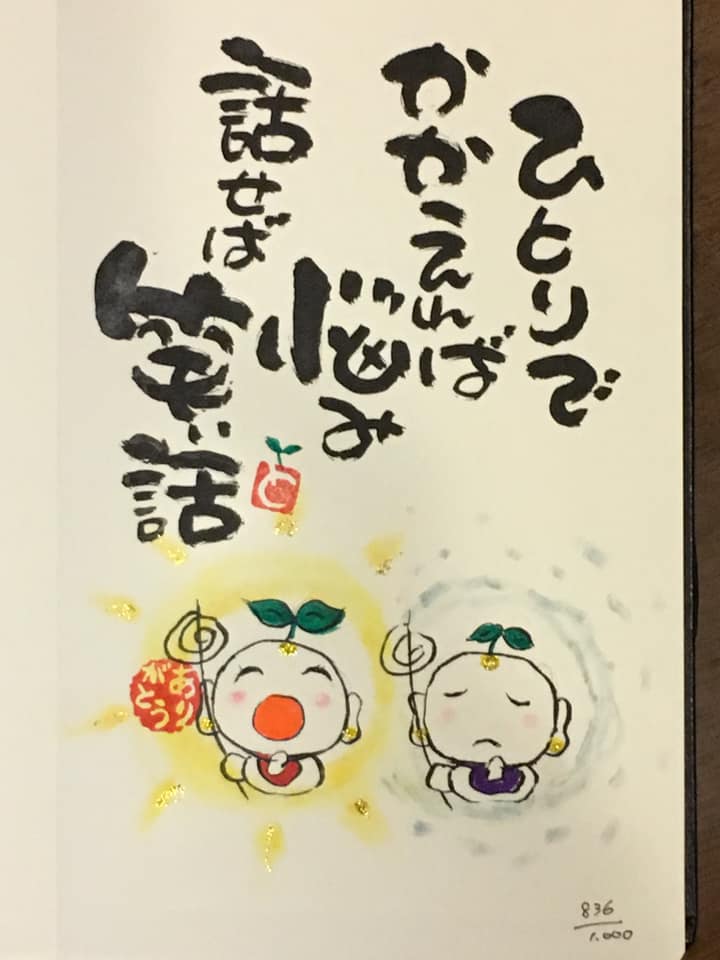 ひとりで
かかえれば
悩み
話せば
笑い話
と
あり
がとう
836
1.000